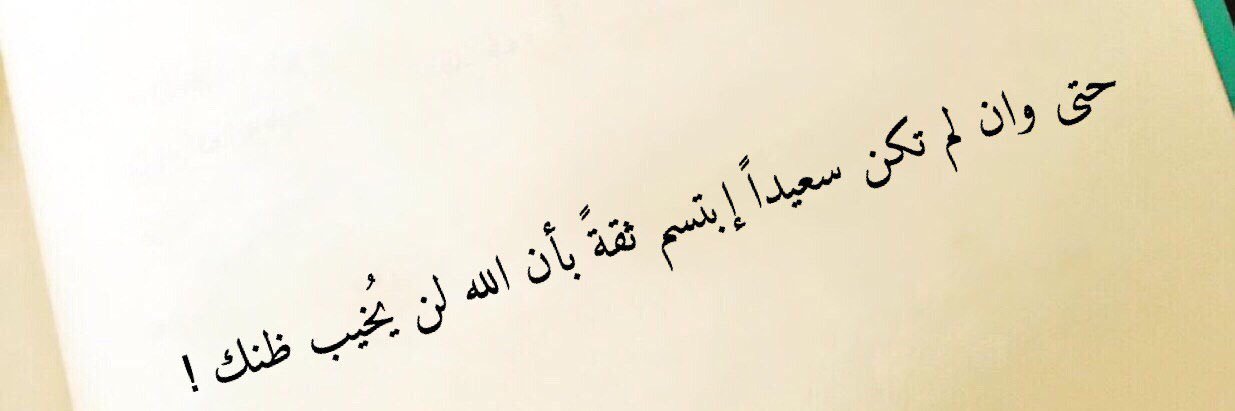 حتى وان لم تكن سعيداً إبتسم ثقةً بأن الله لن يُخيب ظنك !